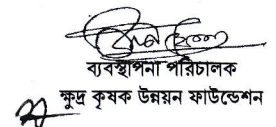 ব্যবস্থাপনা পরিচালক
ক্ষুদ্র কৃষক উন্নয়ন ফাউন্ডেশন